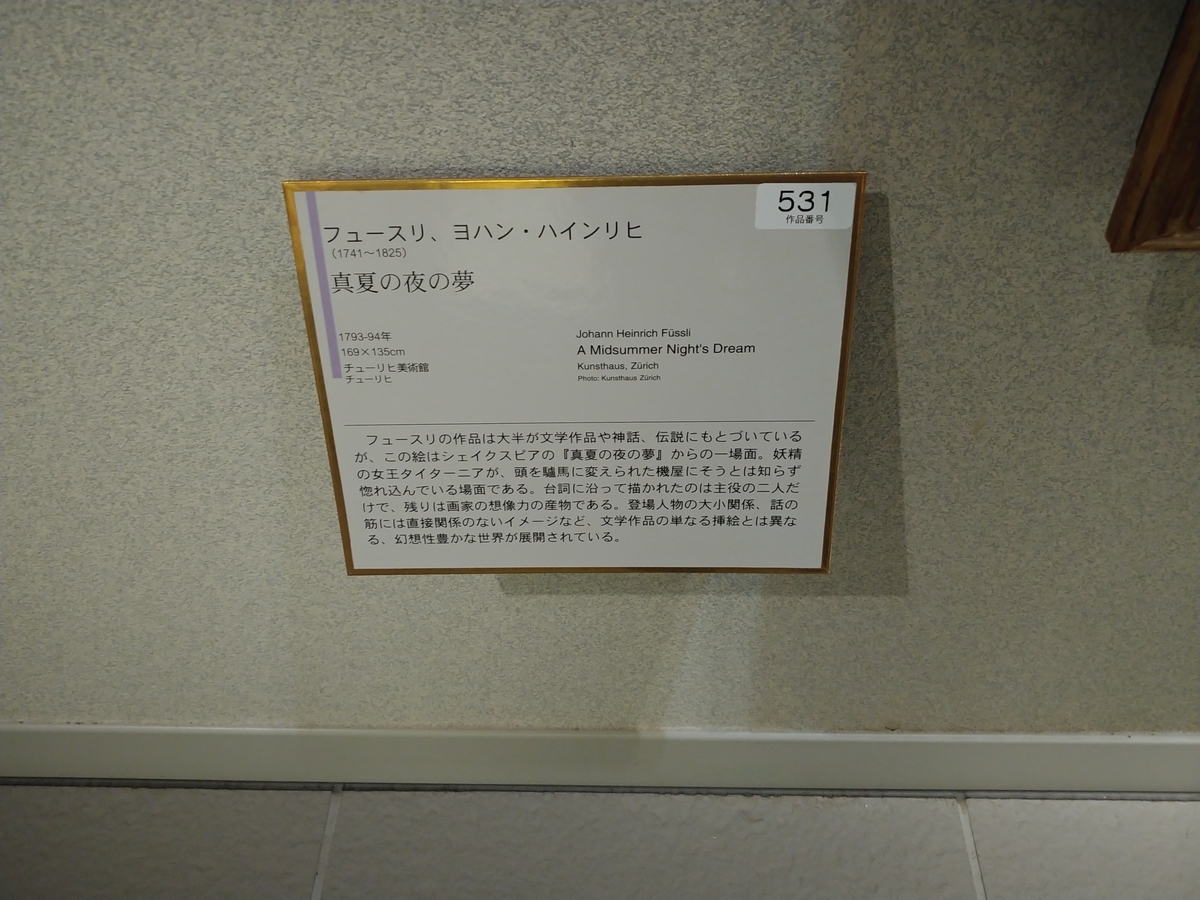 531
作品番号
フュースリ、ヨハン・ハインリヒ
(1741～1825)
真夏の夜の夢
1793-94年
169×135cm
チューリヒ美術館
チューリヒ
Johann Heinrich Füssli
A Midsummer Night's Dream
Kunsthaus, Zürich
Photo: Kunsthaus Zürich
フュースリの作品は大半が文学作品や神話、伝説にもとづいている
が、この絵はシェイクスピアの『真夏の夜の夢』からの一場面。妖精
の女王タイターニアが、頭を驢馬に変えられた機屋にそうとは知らず
惚れ込んでいる場面である。台詞に沿って描かれたのは主役の二人だ
けで、残りは画家の想像力の産物である。登場人物の大小関係、話の
筋には直接関係のないイメージなど、文学作品の単なる挿絵とは異な
る、幻想性豊かな世界が展開されている。